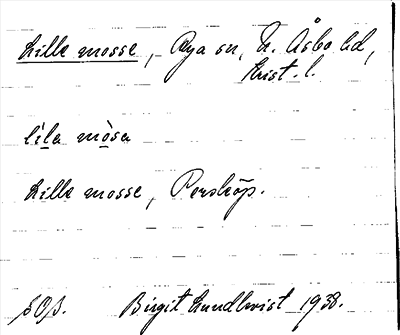 Lille mosse, Rya sn, N. Åsbo hd,
Krist. l.
lila mosa
Lille mosse, Perstorp.
SOB.
Birgit Lundkvist 1938.